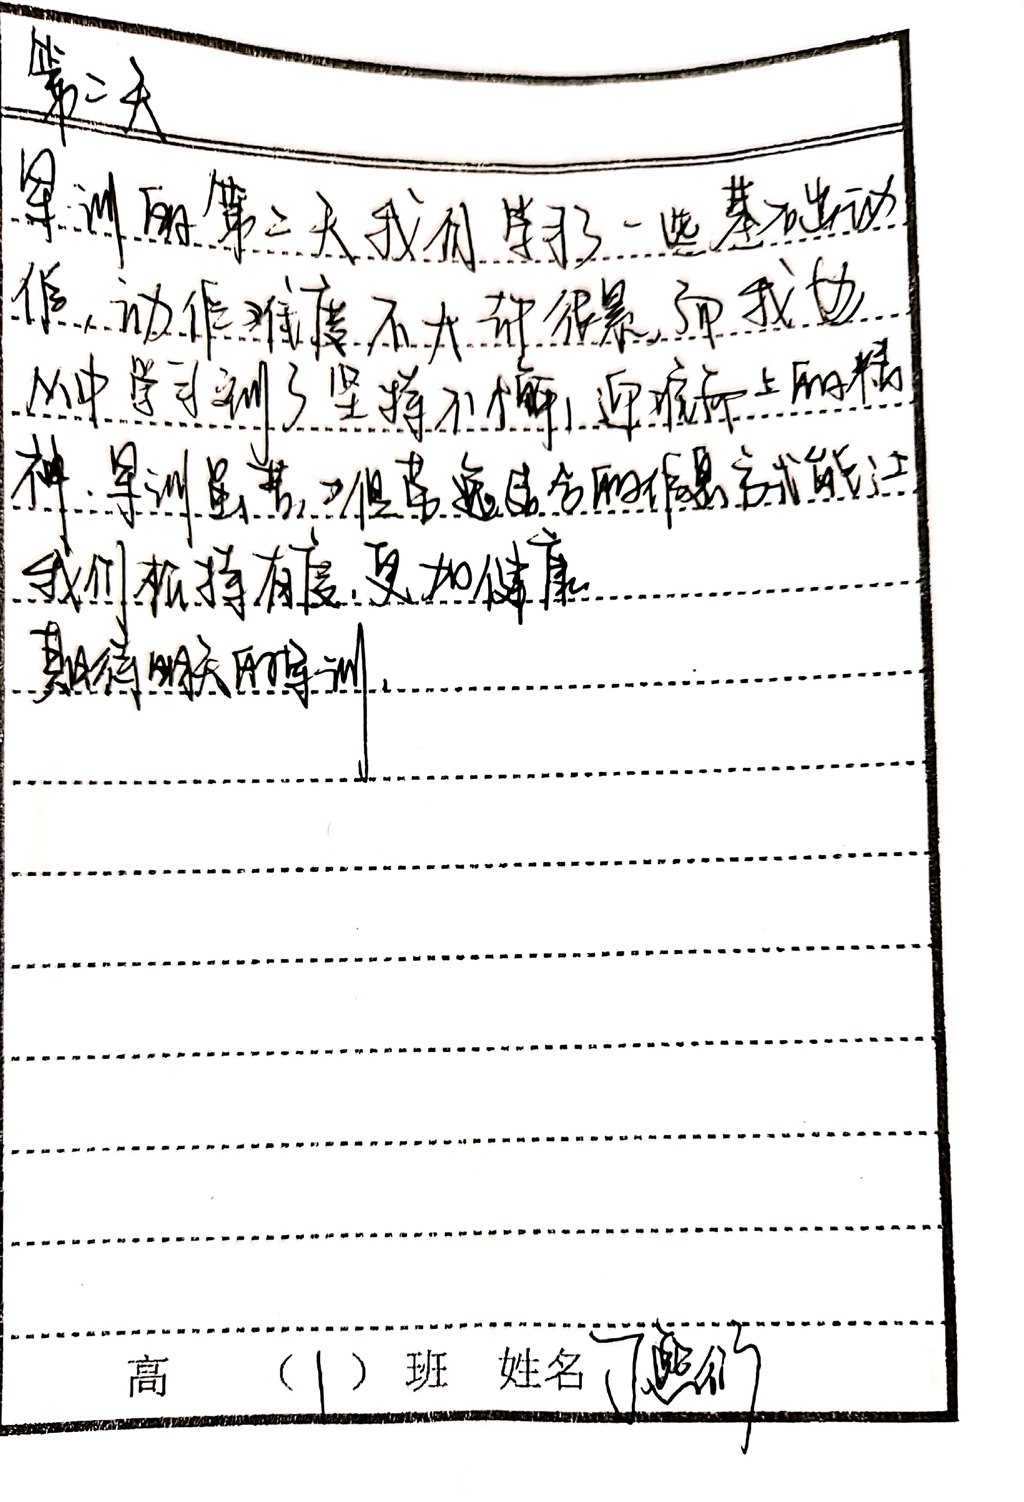 第二天
军训的第二天我们学习了一些基础动
作，动作难度不大 但很累，而我也
从中学习到了坚持不懈，迎难而上的精
神．军训虽苦，但劳逸结合的作息方式能让
我们松持有度．更加健康
期待明天的军训．
高 （1）班 姓名 丁